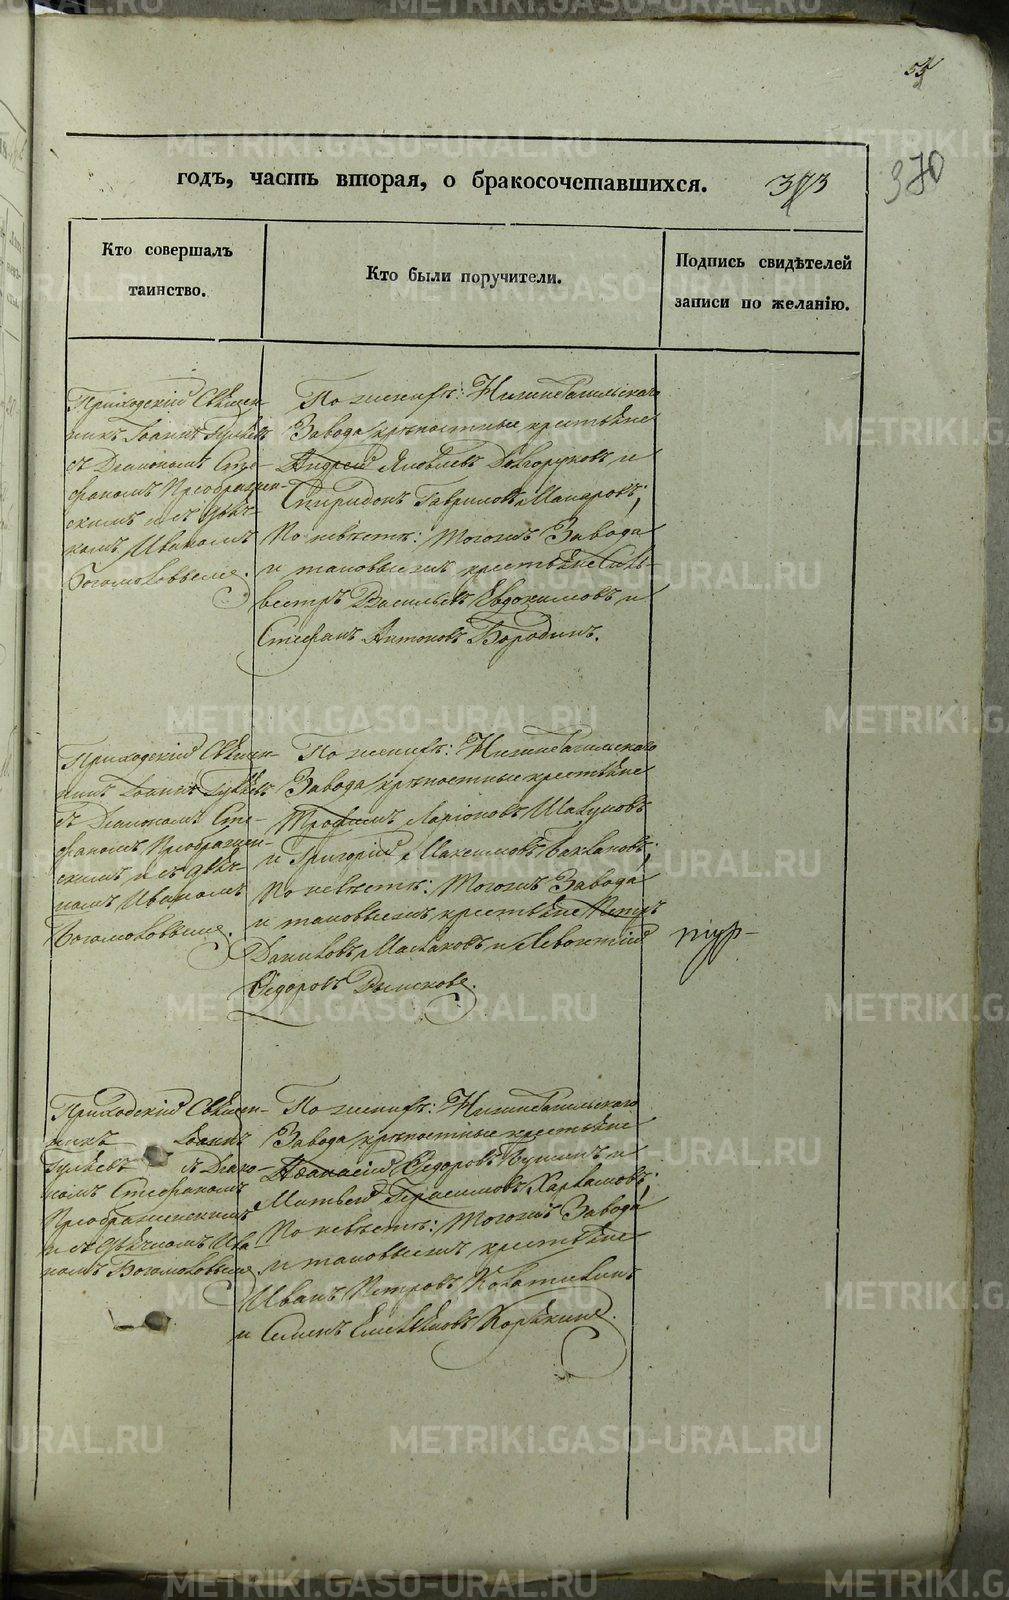 55
годъ, часть вторая, о бракосочетавшихся. 373
370
Кто совершалъ
таинство.
Кто были поручители.
Подпись свидѣтелей
записи по желанію.
Приходскій Священ-
никъ Іоаннъ
съ Діакономъ Сте-
фаномъ Преображен-
скимъ и съ дьяч-
комъ Иваномъ
Богомоловымъ.
По женихѣ: Нижнетагильскаго
Завода крѣпостные крестьяне
Андрей Яковлевъ Долгоруковъ и
Спиридонъ Гавриловъ Макаровъ;
По невѣстѣ: тогожъ Завода
и таковыежъ крестьяне Силь-
вестръ Васильевъ Евдокимовъ и
Стефанъ Антоновъ Бородинъ.
Приходскій Священ-
никъ Іоаннъ
съ Діакономъ Сте-
фаномъ Преображен-
скимъ и съ дьяч-
комъ Иваномъ
Богомоловымъ.
По женихѣ: Нижнетагильскаго
Завода крѣпостные крестьяне
Трофимъ Ларіоновъ
и Григорій Максимовъ Баклановъ;
По невѣстѣ: тогожъ Завода
и таковыежъ крестьяне Петръ
Даниловъ Маслаковъ и Леонтій
Ѳедоровъ
тур-
Приходскій Священ-
никъ Іоаннъ
съ Діако-
номъ Стефаномъ
Преображенскимъ
и съ дьячкомъ Ива-
номъ Богомоловымъ.
По женихѣ: Нижнетагильскаго
Завода крѣпостные крестьяне
Аѳанасій Ѳедоровъ и
Матвей Герасимовъ Харламовъ;
По невѣстѣ: тогожъ Завода
и таковыежъ крестьяне
Иванъ Петровъ
и Семенъ Емельяновъ Корякинъ.
METRIKI.GASO-URAL.RU